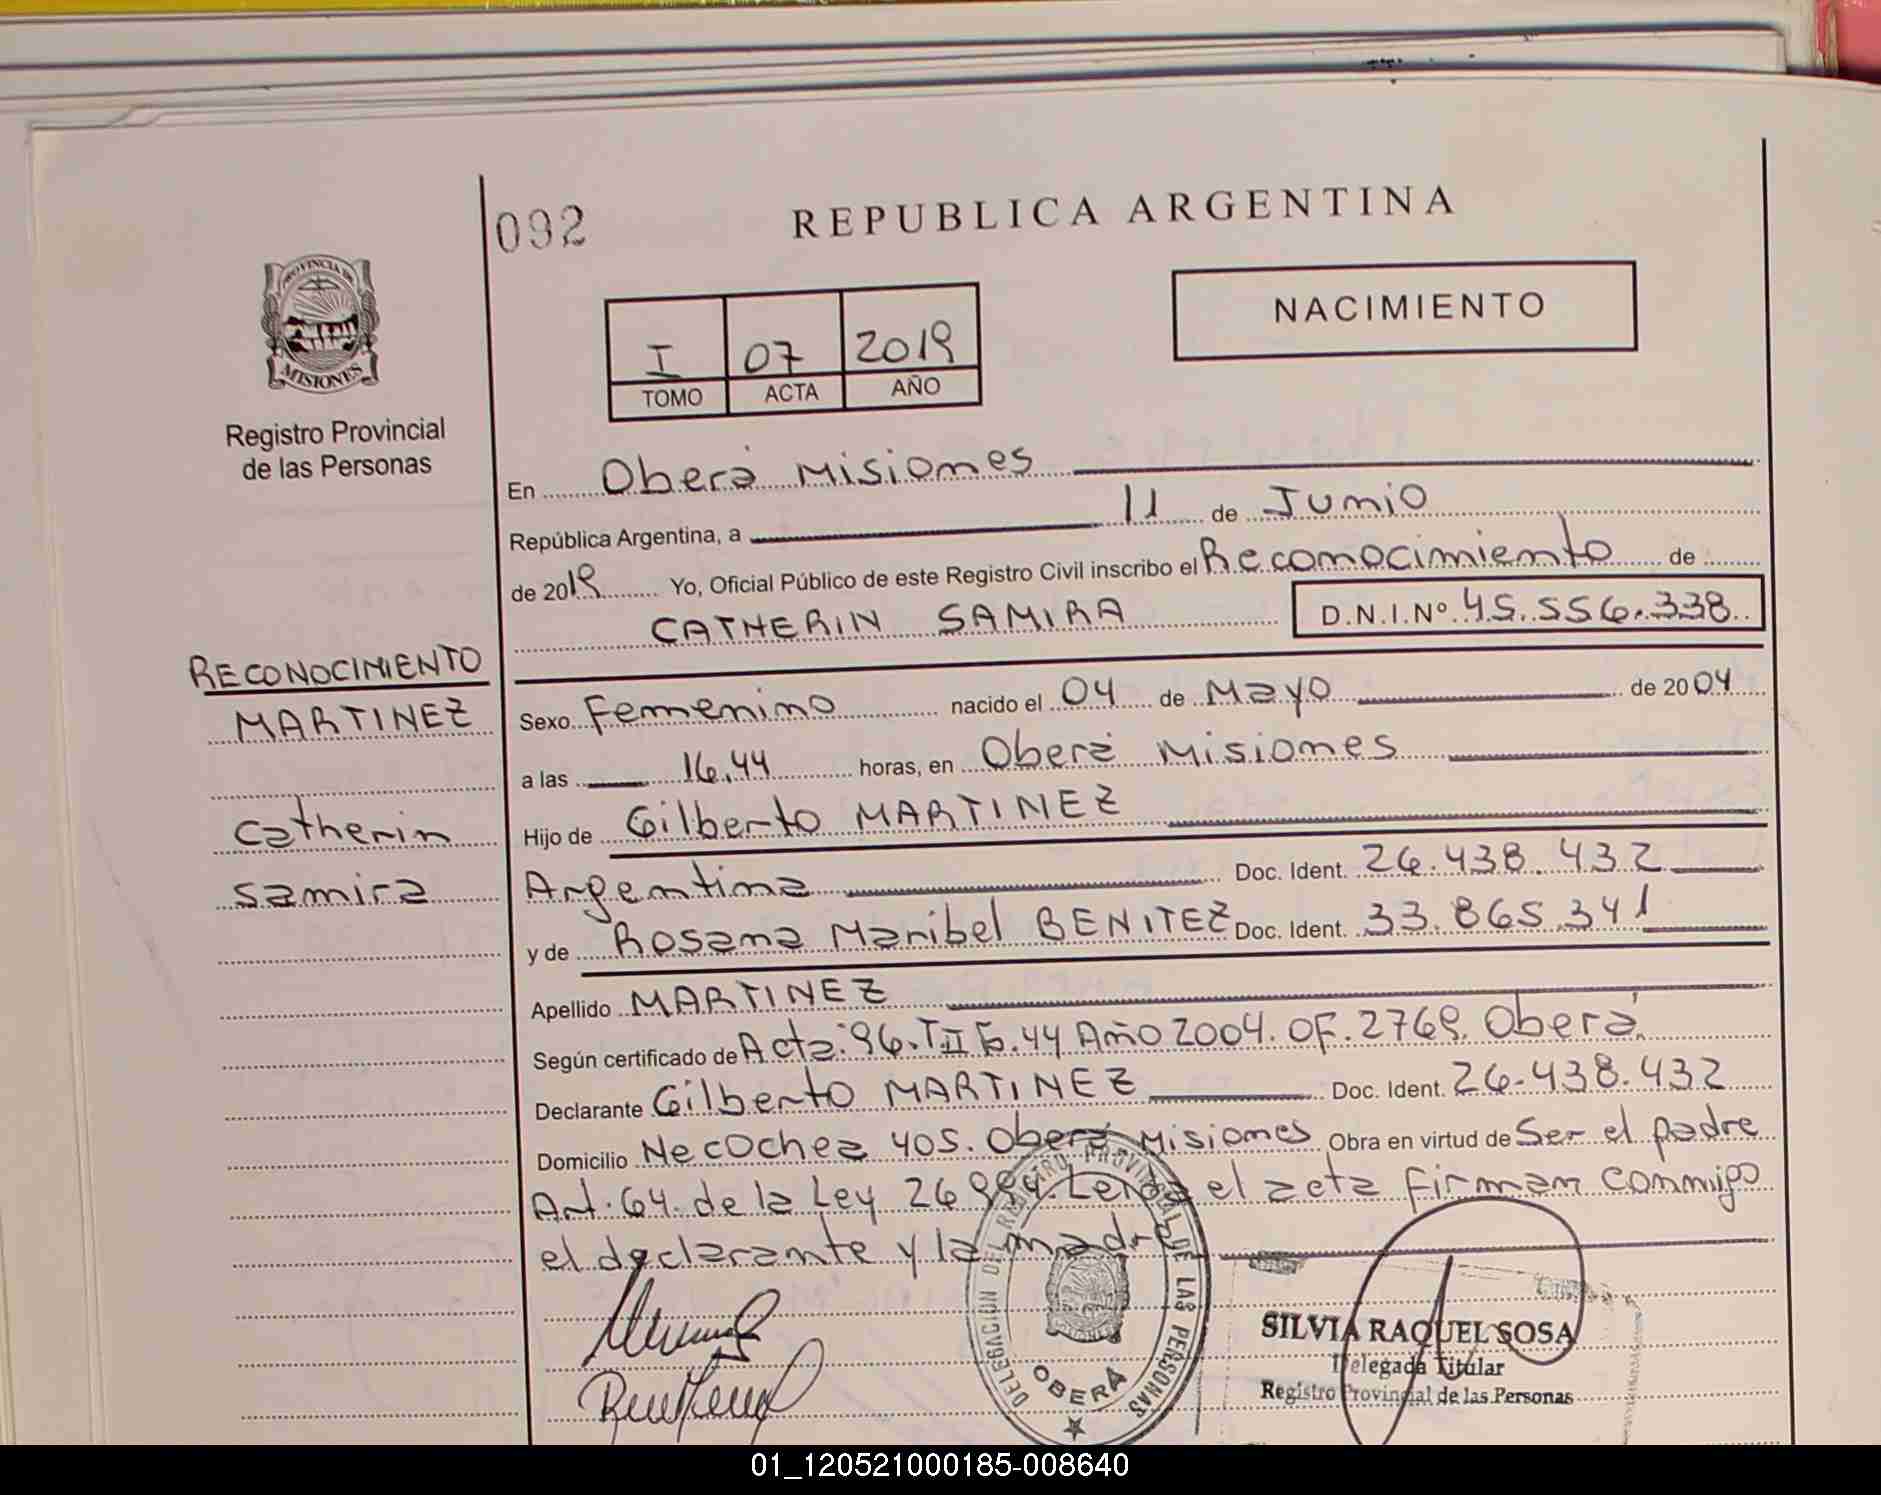 092
REPUBLICA ARGENTINA
PROVINCIA DE
MISIONES
Registro Provincial
de las Personas
NACIMIENTO
I 07 2019
TOMO ACTA AÑO
En Oberá Misiones
República Argentina, a 11 de Junio
de 2019 Yo, Oficial Público de este Registro Civil inscribo el Reconocimiento de
CATHERIN SAMIRA D.N.I.Nº 45.556.338
RECONOCIMIENTO
MARTINEZ
Catherin
Samira
Sexo Femenino nacido el 04 de Mayo de 2004
a las 16,44 horas, en Oberá Misiones
Hijo de Gilberto MARTINEZ
Argentina Doc. Ident. 26.438.432
y de Rosana Maribel BENITEZ Doc. Ident. 33.865.341
Apellido MARTINEZ
Según certificado de Acta: 96. T II F. 44 Año 2004. OF. 2769. Oberá.
Declarante Gilberto MARTINEZ Doc. Ident. 26.438.432
Domicilio Necochea 405. Oberá Misiones Obra en virtud de Ser el padre
Art. 64. de la Ley 26994. Leida el acta firman conmigo
el declarante y la madre
DELEGACION DEL REGISTRO PROVINCIAL DE LAS PERSONAS
OBERÁ
SILVIA RAQUEL SOSA
Delegada Titular
Registro Provincial de las Personas
01_120521000185-008640